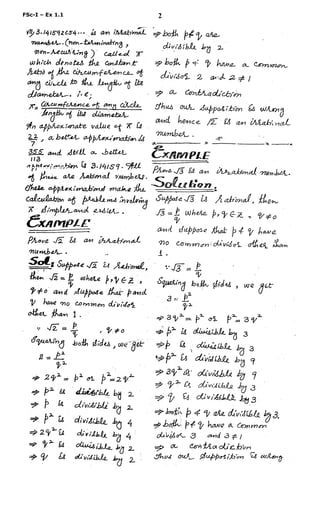 FSc-I - Ex 1.1
2
3.141592654... is an irrational
number. (non-terminating,
non-recurring) called π
which denotes the constant
ratio of the circumference of
any circle to the length of its
diameter. i.e;
π = Circumference of any circle
length of its diameter.
An approximate value of π is
22/7, a better approximation is
355/113 and still a better
approximation is 3.14159. All
of these are rational numbers.
these approximations make the
calculation of problems involving
π simpler and easier.
EXAMPLE
Prove √2 is an irrational
number.
Sol: Suppose √2 is rational,
then √2 = p/q where p, q ∈ Z,
q ≠ 0 and suppose that p and
q have no common divisor
other than 1.
∵ √2 = p/q , q ≠ 0
Squaring both sides, we get
2 = p²/q²
⇒ 2q² = p² or p² = 2q²
⇒ p² is divisible by 2
⇒ p is divisible by 2
⇒ p² is divisible by 4
⇒ 2q² is divisible by 4
⇒ q² is divisible by 2
⇒ q is divisible by 2
⇒ both p & q are
divisible by 2
⇒ both p & q have a common
divisor 2 and 2 ≠ 1
⇒ a contradiction
thus our supposition is wrong
and hence √2 is an irrational
number.
EXAMPLE
Prove √3 is an irrational number.
Solution:
Suppose √3 is rational, then
√3 = p/q where p, q ∈ Z, q ≠ 0
and suppose that p & q have
no common divisor other than
1.
∵ √3 = p/q
Squaring both sides, we get
3 = p²/q²
⇒ 3q² = p² or p² = 3q²
⇒ p² is divisible by 3
⇒ p is divisible by 3
⇒ p² is divisible by 9
⇒ 3q² is divisible by 9
⇒ q² is divisible by 3
⇒ q is divisible by 3
⇒ both p & q are divisible by 3.
⇒ both p & q have a common
divisor 3 and 3 ≠ 1
⇒ a contradiction
Thus our supposition is wrong